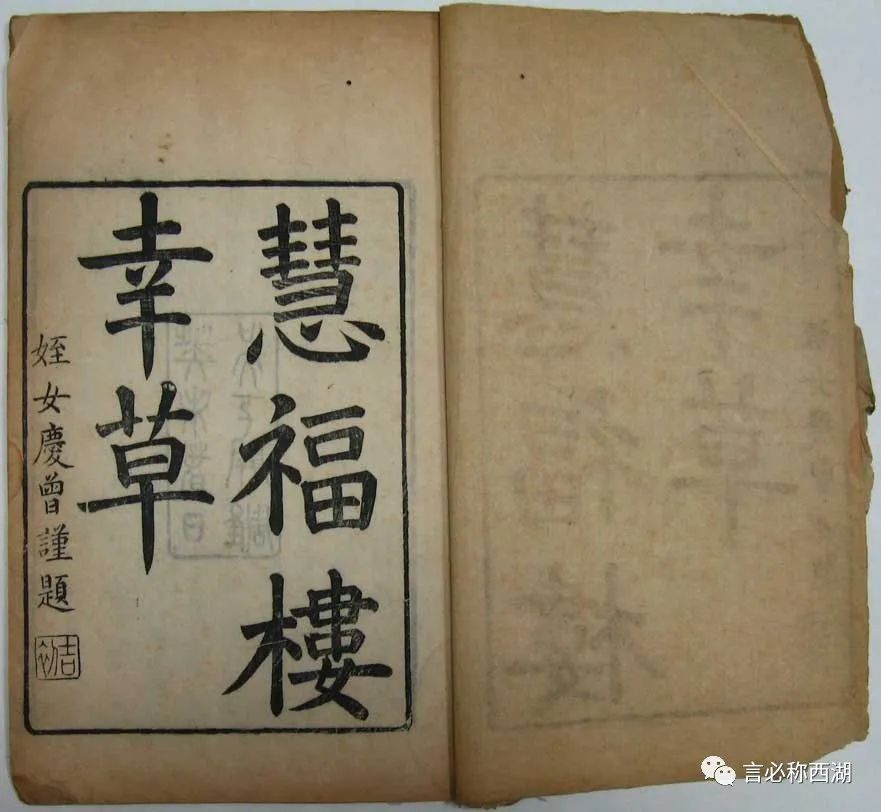 慧福樓
幸草
姪女慶曾謹題
言必称西湖